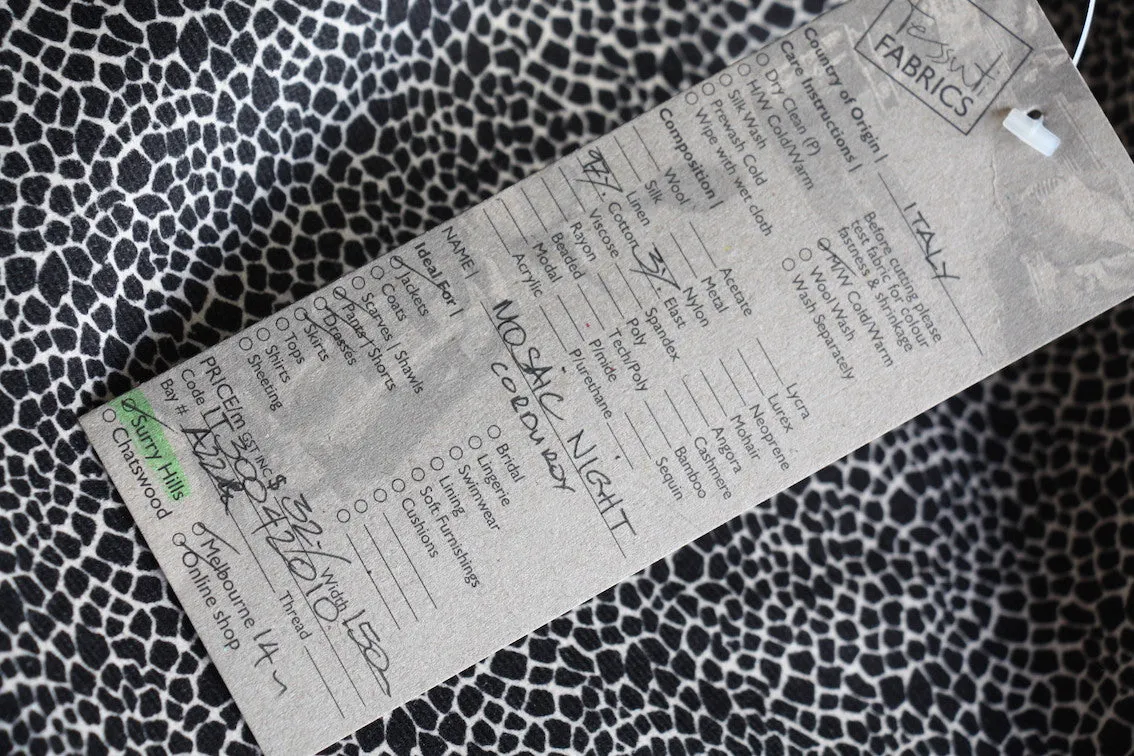 Tessuti
FABRICS
Country of Origin | ITALY
Care Instructions | Before cutting please
test fabric for colour
fastness & shrinkage
Dry Clean (P)
H/W Cold/Warm
Silk Wash
Prewash Cold
Wipe with wet cloth
M/W Cold/Warm
Wool Wash
Wash Separately
Composition |
Wool
Silk
Linen
97% Cotton
Viscose
Rayon
Beaded
Modal
Acrylic
Acetate
Metal
Nylon
3% Elast
Spandex
Poly
Tech/Poly
P/mide
P/urethane
Lycra
Lurex
Neoprene
Mohair
Angora
Cashmere
Bamboo
Sequin
NAME | MOSAIC NIGHT
CORDUROY
Ideal For |
Jackets
Coats
Scarves | Shawls
Pants | Shorts
Dresses
Skirts
Tops
Shirts
Sheeting
Bridal
Lingerie
Swimwear
Lining
Soft Furnishings
Cushions
PRICE/m GST INC $ 32./ Width 150
Code LT300 42/010
Bay # Thread
Surry Hills
Chatswood
Melbourne 14
Online shop